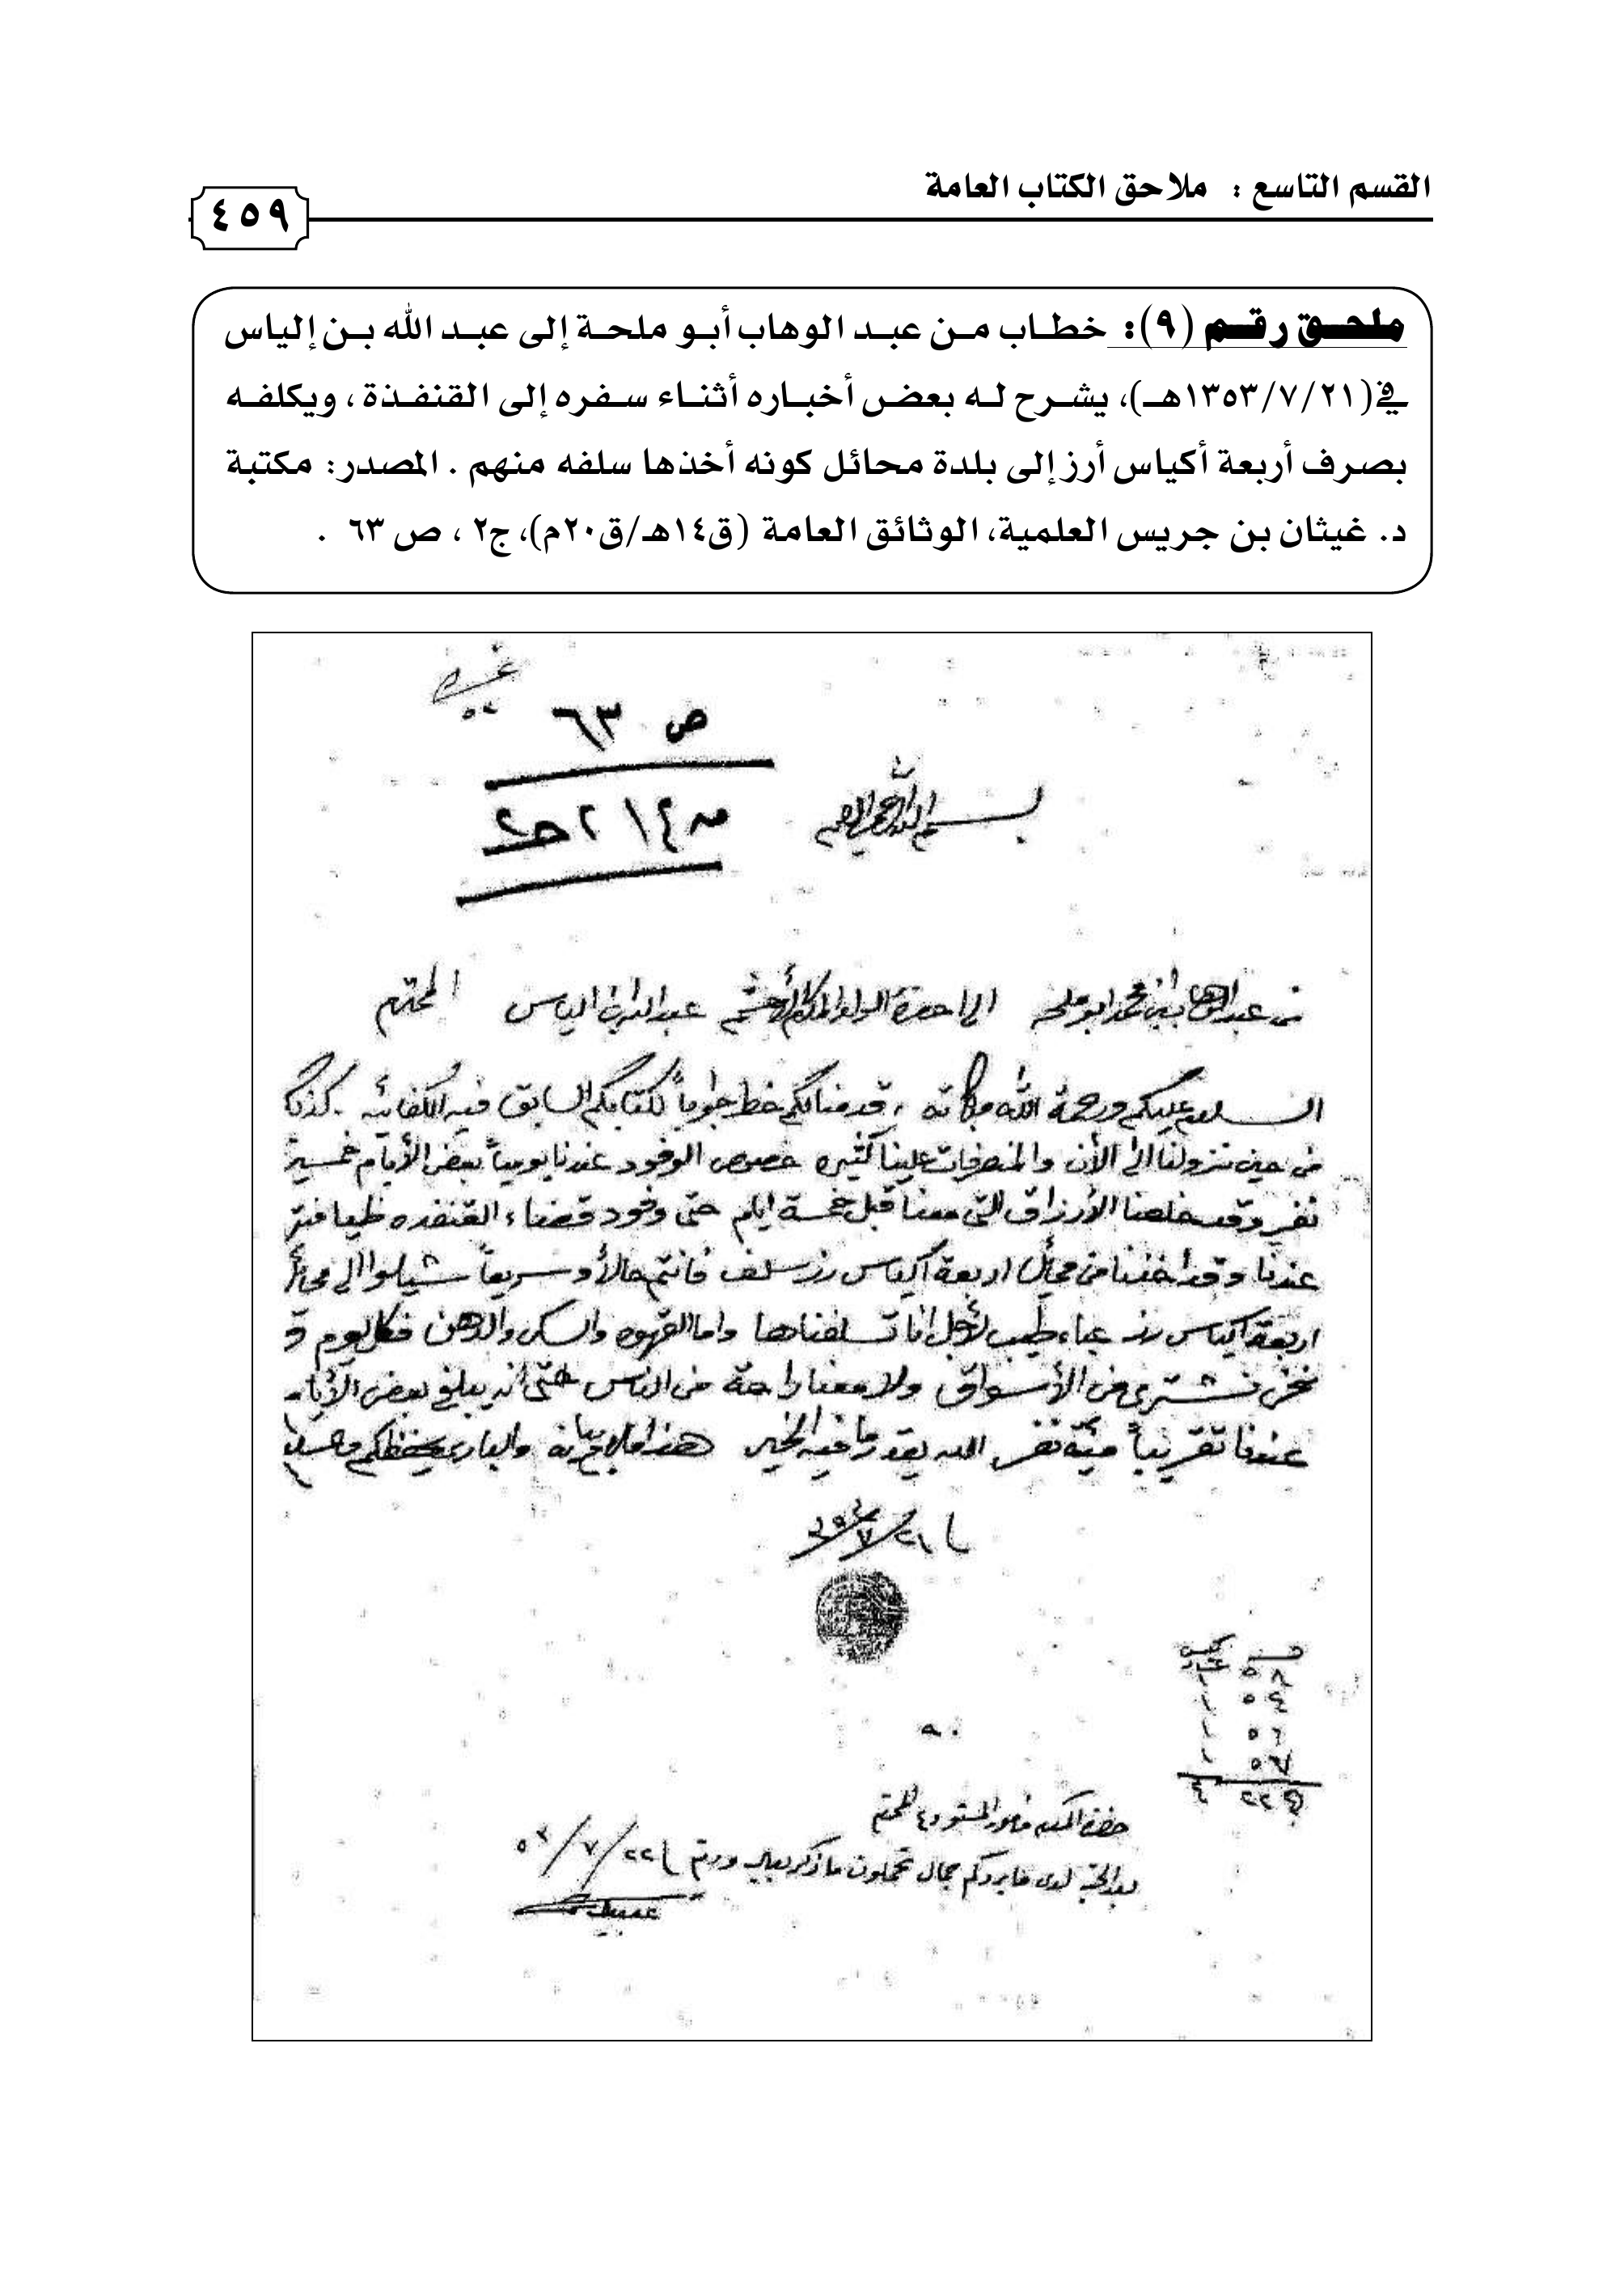 القسم التاسع : ملاحق الكتاب العامة
٤٥٩
ملحق رقم (٩): خطاب من عبد الوهاب أبو ملحة إلى عبد الله بن إلياس
في (١٣٥٣/٧/٢١هـ)، يشرح له بعض أخباره أثناء سفره إلى القنفذة ، ويكلفه
بصرف أربعة أكياس أرز إلى بلدة محائل كونه أخذها سلفه منهم . المصدر: مكتبة
د. غيثان بن جريس العلمية، الوثائق العامة (ق١٤هـ/ق٢٠م)، ج٢ ، ص ٦٣ .
ص ٦٣
بسم الله الرحمن الرحيم
من عبدالوهاب بن محمد ابو ملحه الى حضرة الولد المكرم الأحشم عبدالله بن الياس المحترم
السلام عليكم ورحمة الله وبركاته ، قدمنالكم خط جواباً لكتابكم السابق فيه الكفائيه . كذلك
من حين نزولنا الى الأن والمنصرفات علينا كثيره خصوص الوفود عندنا يومياً بعض الأيام خمسين
نفر وقد خلصنا الأرزاق التي معنا قبل خمسة ايام حتى وفود قضاء القنفده
عندنا وقد أخذنا من محائل اربعة اكياس رز سلف فانتم حالاً وسريعاً شيلوا الى محائل
اربعة اكياس رز طيب لأجل اننا تسلفناها واما القهوه والسكر والدهن فكل يوم و
نحن نشتري من الأسواق ولا معنا راحة من الناس حتى انه يبلغ بعض الأيام
عندنا تقريباً مية نفر الله يقدر ما فيه الخير هذا مالزم بيانه والباري يحفظكم والسلام
٢١/٧/
حضرة المكرم مامور المستودع المحترم
لدى مايردكم جمال تحملون ما ذكر ٢٢/٧/٥٣